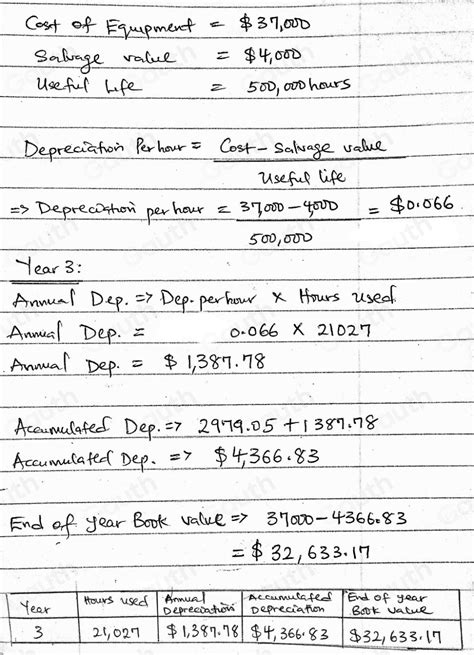 Cost of Equipment = $37,000
Salvage value = $4,000
Useful Life = 500,000 hours
Depreciation Per hour = Cost - Salvage value
Useful life
=> Depreciation per hour = 37,000 - 4000 = $0.066
500,000
Year 3:
Annual Dep. => Dep. per hour × Hours used
Annual Dep. = 0.066 × 21027
Annual Dep. = $1,387.78
Accumulated Dep. => 2979.05 + 1387.78
Accumulated Dep. => $4,366.83
End of year Book value => 37000 - 4366.83
= $32,633.17
Year Hours used Annual Depreciation Accumulated Depreciation End of year Book value
3 21,027 $1,387.78 $4,366.83 $32,633.17